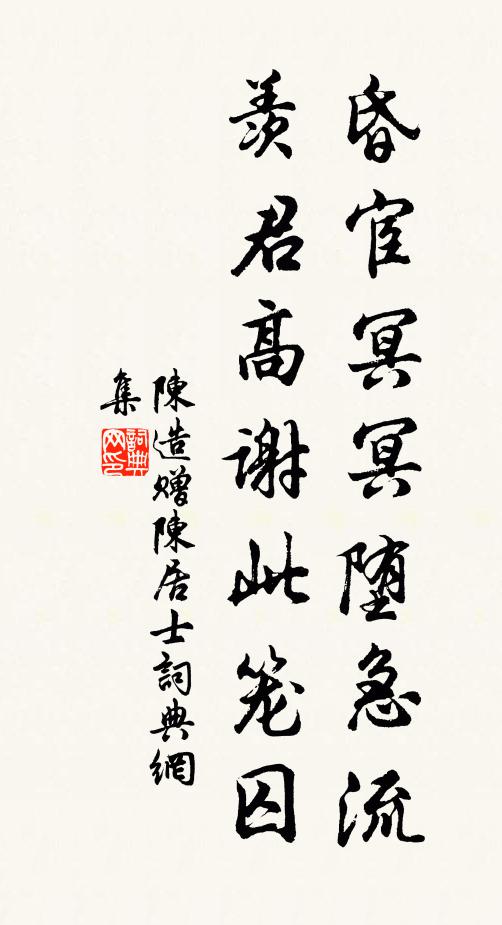 昏宦冥冥堕急流
羨君高谢此笼囚
陳造贈陳居士詞典網
集
詞典
网印